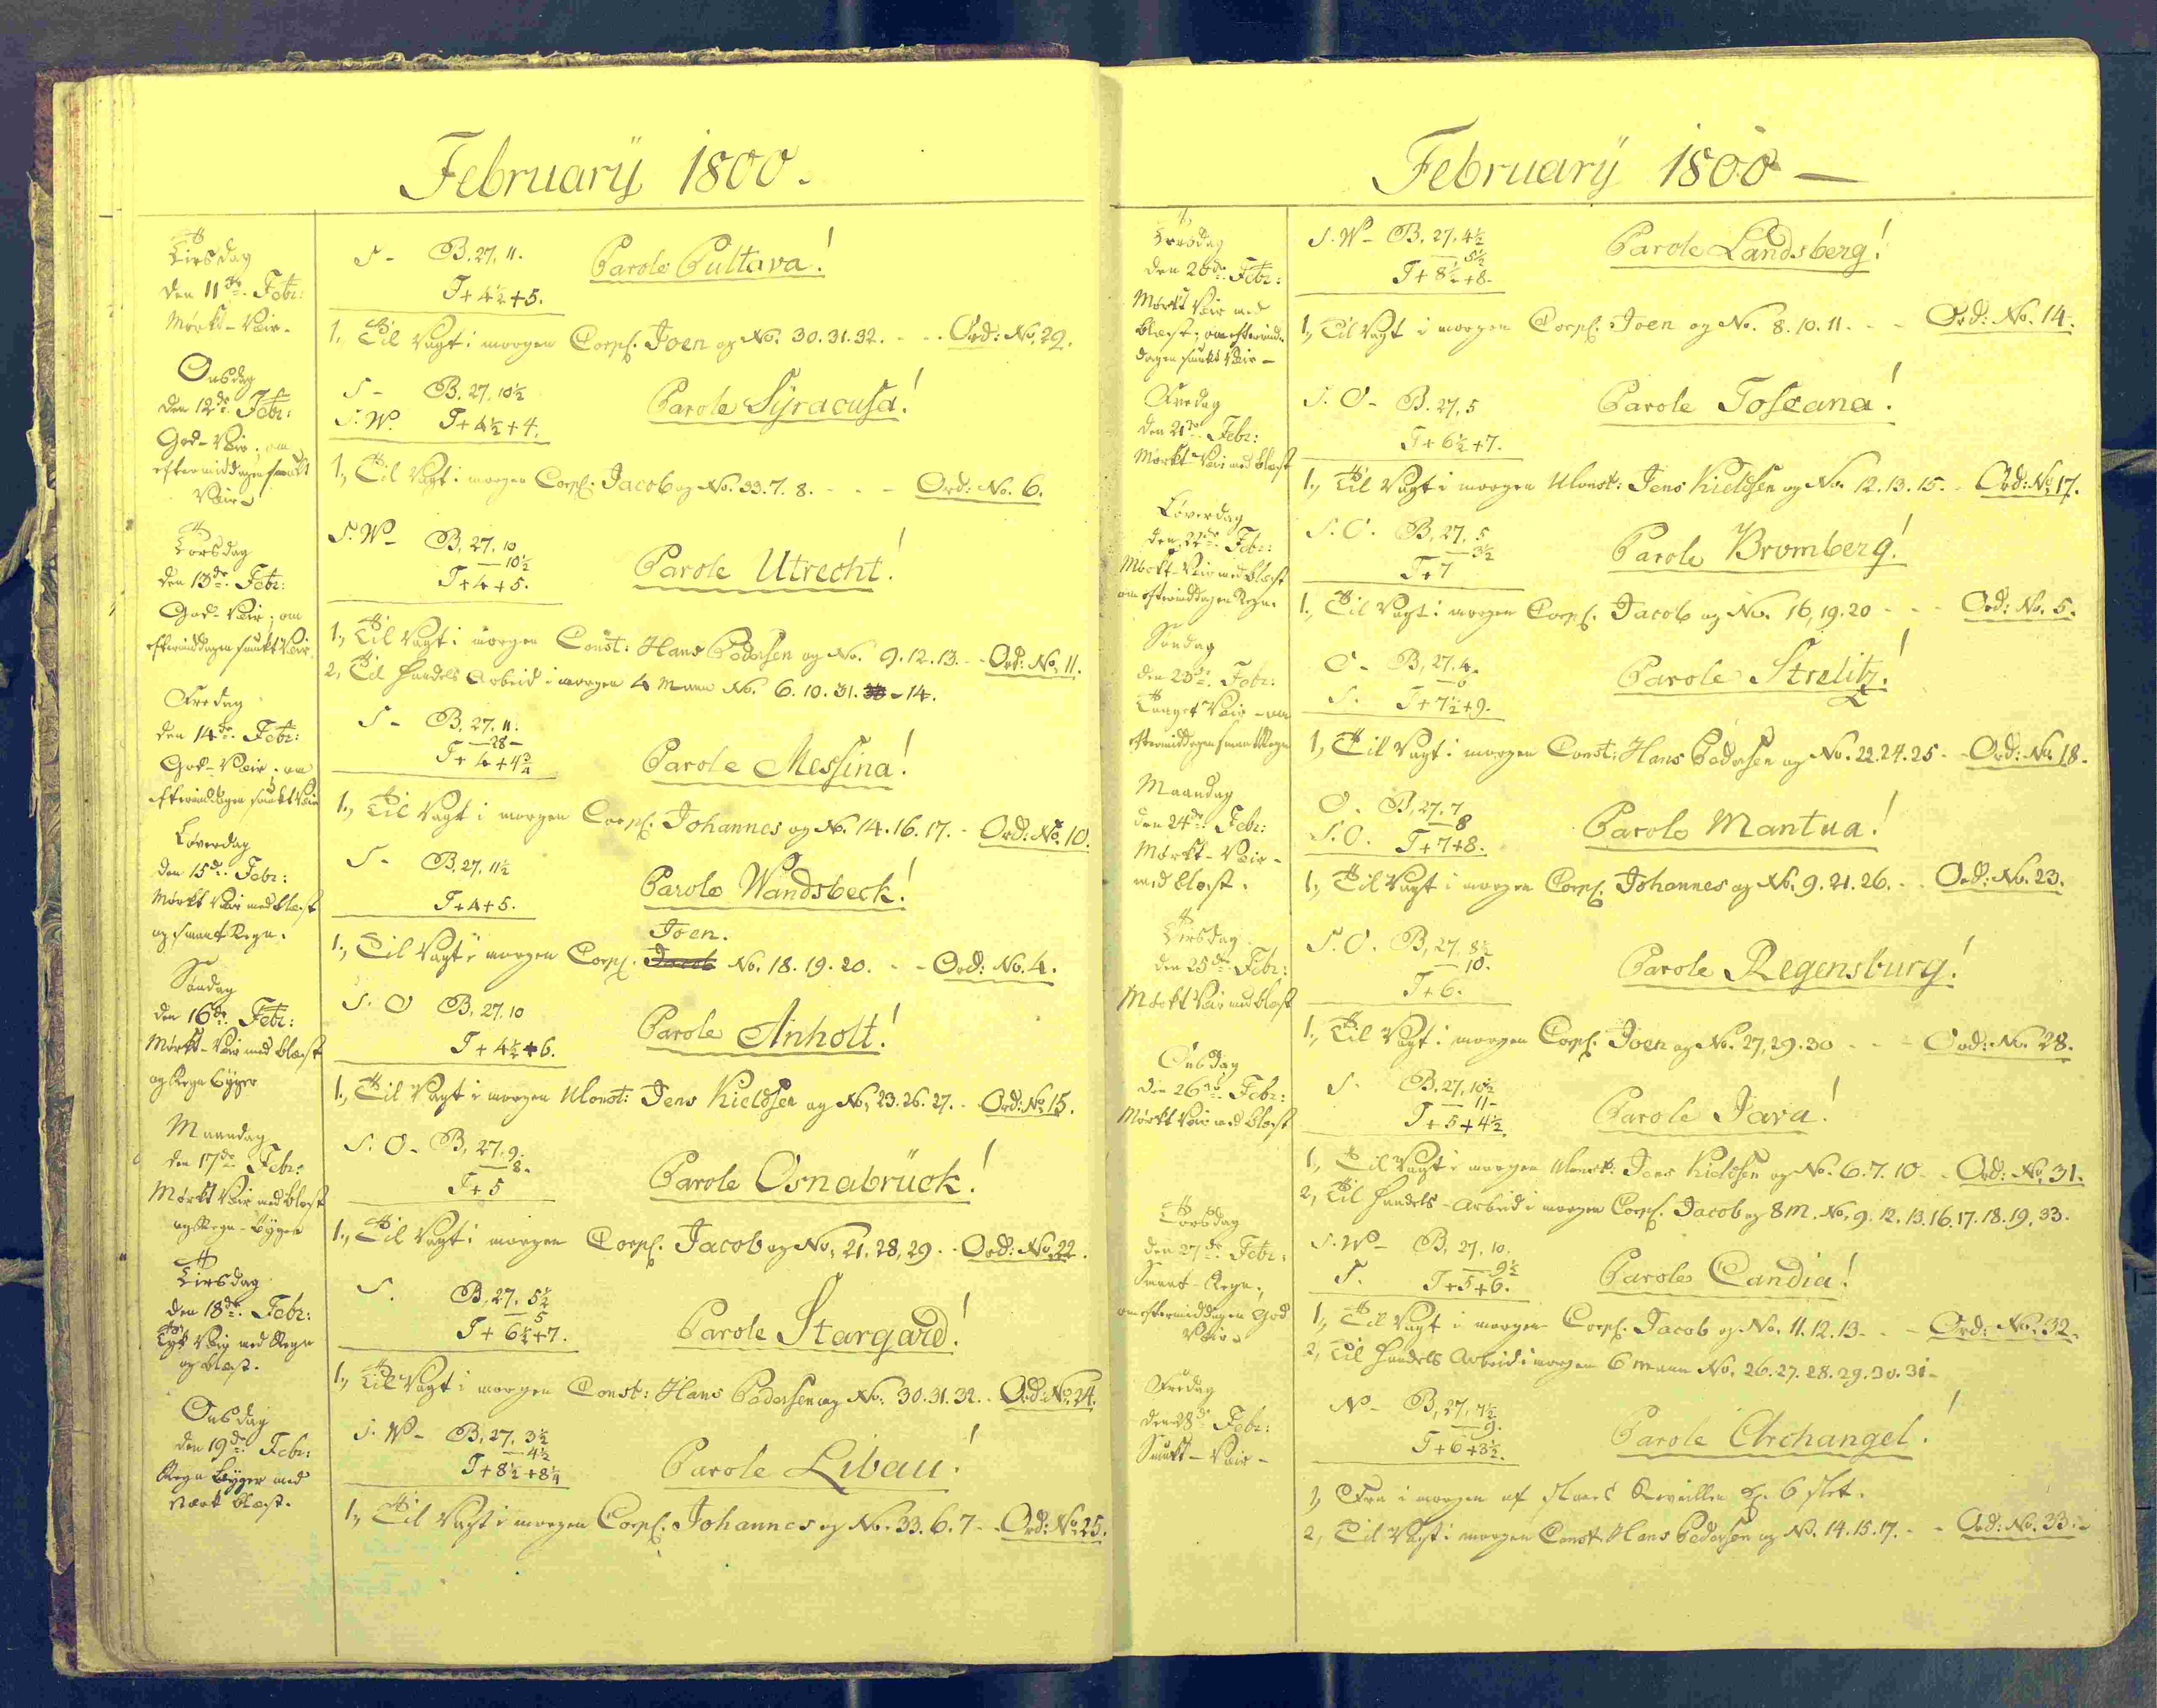 Februarÿ 1800.
Tirsdag
den 11te Febr:
Mørkt-Veir-
S - B. 27, 11.
T+4½+5.
Parole Pultava!
1, Til Vagt i morgen Corpl. Joen og No. 30. 31. 32. - - Ord: No. 29.
Onsdag
den 12te Febr:
God-Veir; om
eftermiddagen smukt
Veir
S - B. 27, 10½
S.W. T+4½+4.
Parole Sÿracusa!
1, Til Vagt i morgen Corpl. Jacob og No. 33. 7. 8. - - - Ord: No. 6.
Torsdag
den 13de Febr:
God-Veir; om
eftermiddagen smukt Veir
S.W- B, 27, 10
— 10½
T+4+5.
Parole Utrecht!
1, Til Vagt i morgen Const: Hans Pedersen og No. 9. 12. 13. - - Ord: No. 11.
2, Til Handels Arbeid i morgen 4 Mann No. 6. 10. 31. - 14.
Fredag
den 14de Febr:
God-Veir; om
eftermiddagen smukt Veir
S - B, 27, 11.
— 28 —
T+4+4¾
Parole Messina!
1, Til Vagt i morgen Corpl. Johannes og No. 14. 16. 17. - Ord: No. 10.
Løverdag
den 15de Febr:
Mørkt Veir med blæst
og smaat Regn.
S - B, 27, 11½
T+4+5.
Parole Wandsbeck!
Joen.
1, Til Vagt i morgen Corpl. Jacob No. 18. 19. 20. - - Ord: No. 4.
Søndag
den 16de Febr:
Mørkt-Veir med blæst
og Regn Bÿger
S. O B, 27, 10
T+4½+6.
Parole Anholt!
1, Til Vagt i morgen Ulonst: Jens Kieldsen og No, 23. 26. 27. - Ord: No 15.
Maandag
den 17de Febr:
Mørkt Veir med blæst
og Regn-Bÿger
S. O- B, 27, 9.
— 8.
T+5
Parole Osnabrück!
1, Til Vagt i morgen Corpl. Jacob og No, 21, 28, 29. - Ord: No. 22.
Tirsdag
den 18de Febr:
Tyk Veir med Regn
og blæst.
S. B, 27, 5½
— 5
T+6½+7.
Parole Stargard!
1, Til Vagt i morgen Const: Hans Pedersen og No. 30. 31. 32. - Ord: No. 24.
Onsdag
den 19de Febr:
Regn Bÿger med
stærk blæst.
S. W- B, 27, 3½
— 4½
T+8½+8¼
Parole Libau!
1, Til Vagt i morgen Corpl. Johannes og No. 33. 6. 7 - - Ord: No 25.
Februarÿ 1800 —
Torsdag
den 20de Febr:
Mørkt Veir med
blæst; om eftermid-
dagen smukt Veir-
S. W- B. 27, 4½
— 5½
T+8½+8.
Parole Landsberg!
1, Til Vagt i morgen Corpl. Joen og No. 8. 10. 11. - - Ord: No. 14.
Fredag
den 21de Febr:
Mørkt Veir med blæst
S. O- B. 27, 5
T+6½+7.
Parole Toscana!
1, Til Vagt i morgen Ulonst: Jens Kieldsen og No. 12. 13. 15. - Ord: No 17.
Løverdag
den 22de Febr:
Mørkt-Veir med blæst
om eftermiddagen Regn.
S. O. B, 27, 5
— 3½
T+7
Parole Bromberg!
1, Til Vagt i morgen Corpl. Jacob og No. 16, 19. 20 - - - Ord: No. 5.
Søndag
den 23de Febr:
Taaget Veir - om
eftermiddagen smaat Regn
O- B, 27, 4.
— 6
S. T+7½+9.
Parole Strelitz!
1, Til Vagt i morgen Const: Hans Pedersen og No. 22. 24. 25 - - Ord: No. 18.
Maandag
den 24de Febr:
Mørkt-Veir-
med blæst.
O. B, 27, 7
— 8
S. O. T+7+8.
Parole Mantua!
1, Til Vagt i morgen Corpl. Johannes og No. 9. 21. 26. - - Ord: No. 23.
Tirsdag
den 25de Febr:
Mørkt Veir med blæst
S. O. B, 27, 8½
— 10.
T+6.
Parole Regensburg!
1, Til Vagt i morgen Corpl. Joen og No. 27, 29. 30 - - - Ord: No. 28.
Onsdag
den 26de Febr:
Mørkt Veir med blæst
S. B. 27, 10½
— 11 -
T+5+4½.
Parole Java!
1, Til Vagt i morgen Ulonst: Jens Kieldsen og No. 6. 7. 10 - - Ord: No. 31.
2, Til Handels-Arbeid i morgen Corpl. Jacob og 8 M. No, 9. 12. 13. 16. 17. 18. 19, 33.
Torsdag
den 27de Febr:
Smaat-Regn,
om eftermiddagen God
Veir
S. W- B, 27, 10.
— 9½
S. T+5+6.
Parole Candia!
1, Til Vagt i morgen Corpl. Jacob og No. 11. 12. 13 - - - Ord: No. 32.
2, Til Handels Arbeid i morgen 6 Mann No. 26. 27. 28. 29. 30. 31 -
Fredag
den 28de Febr:
Smukt-Veir-
N- B, 27, 7½
— 9.
T+6+3½.
Parole Archangel!
1, Fra i morgen af Reveillen Kl. 6 slet.
2, Til Vagt i morgen Const: Hans Pedersen og No. 14. 15. 17. - - Ord: No. 33.